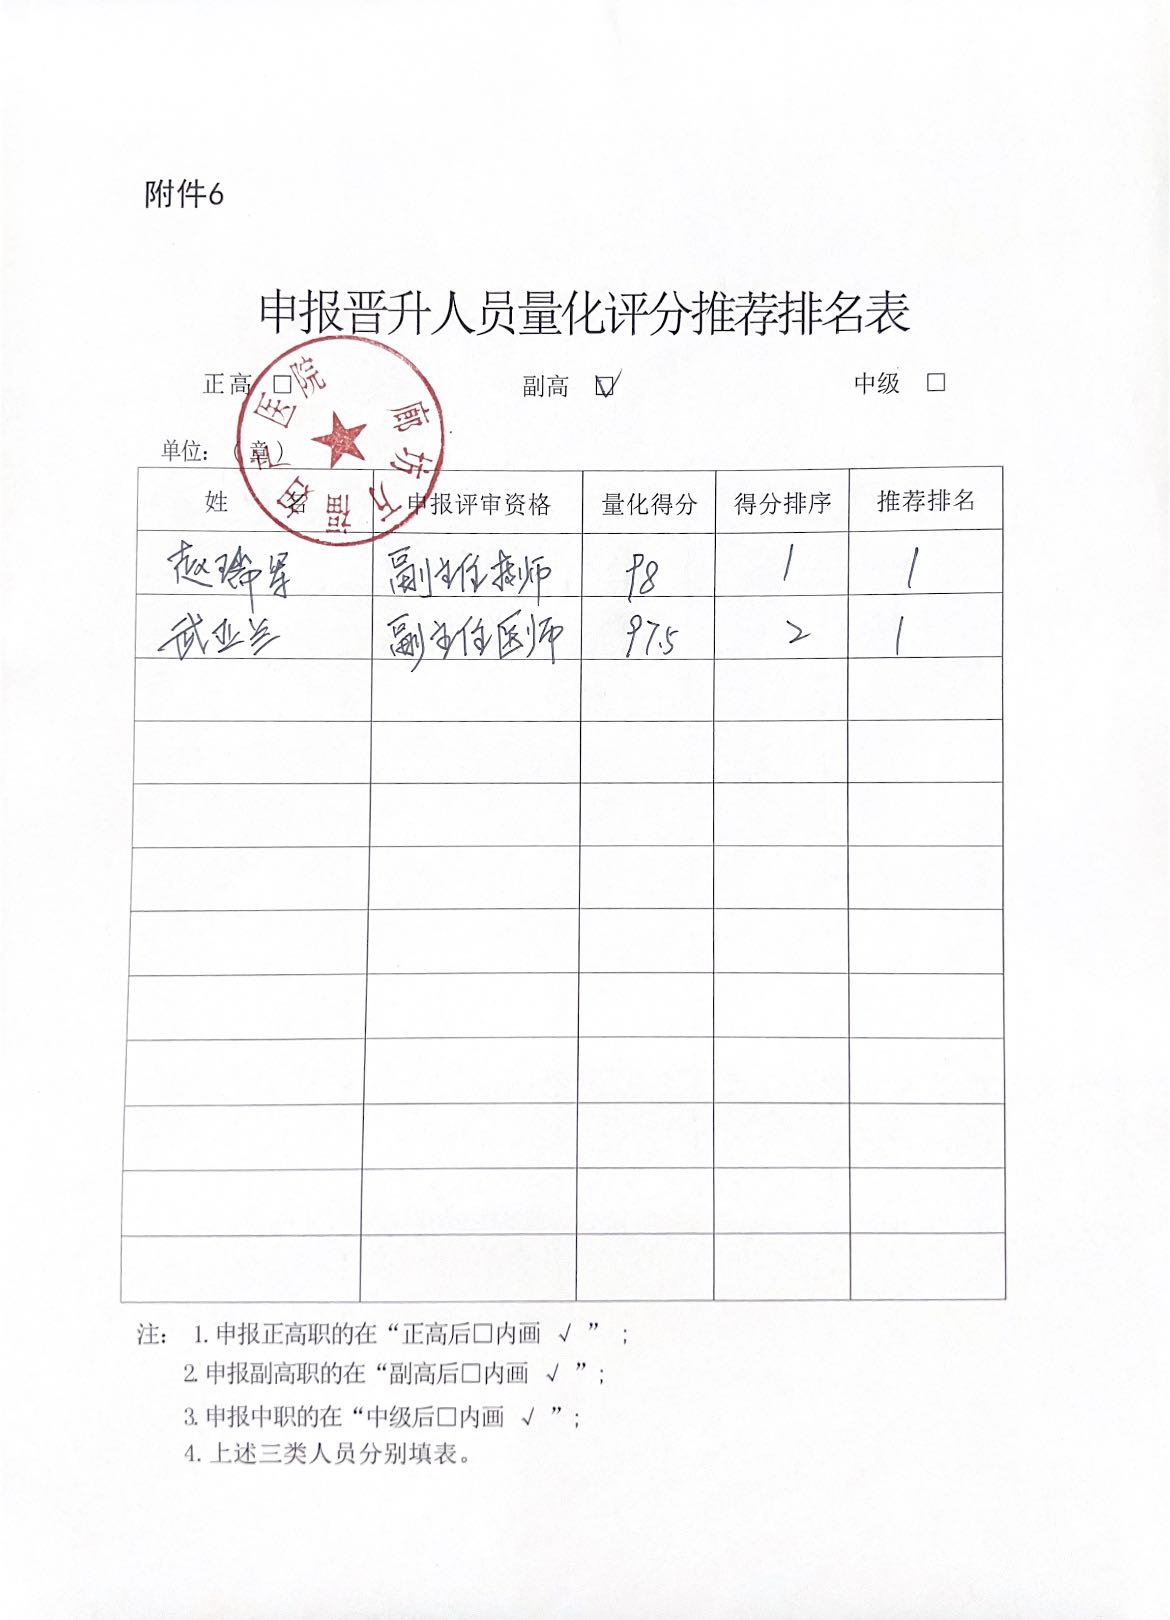 附件6
申报晋升人员量化评分推荐排名表
正高 □ 副高 ☑ 中级 □
单位：（章）
廊坊万福富名仁医院
姓 名 申报评审资格 量化得分 得分排序 推荐排名
赵瑞军 副主任技师 98 1 1
武亚兰 副主任医师 97.5 2 1
注： 1.申报正高职的在“正高后□内画 √ ” ；
2.申报副高职的在“副高后□内画 √ ”；
3.申报中职的在“中级后□内画 √ ”；
4.上述三类人员分别填表。